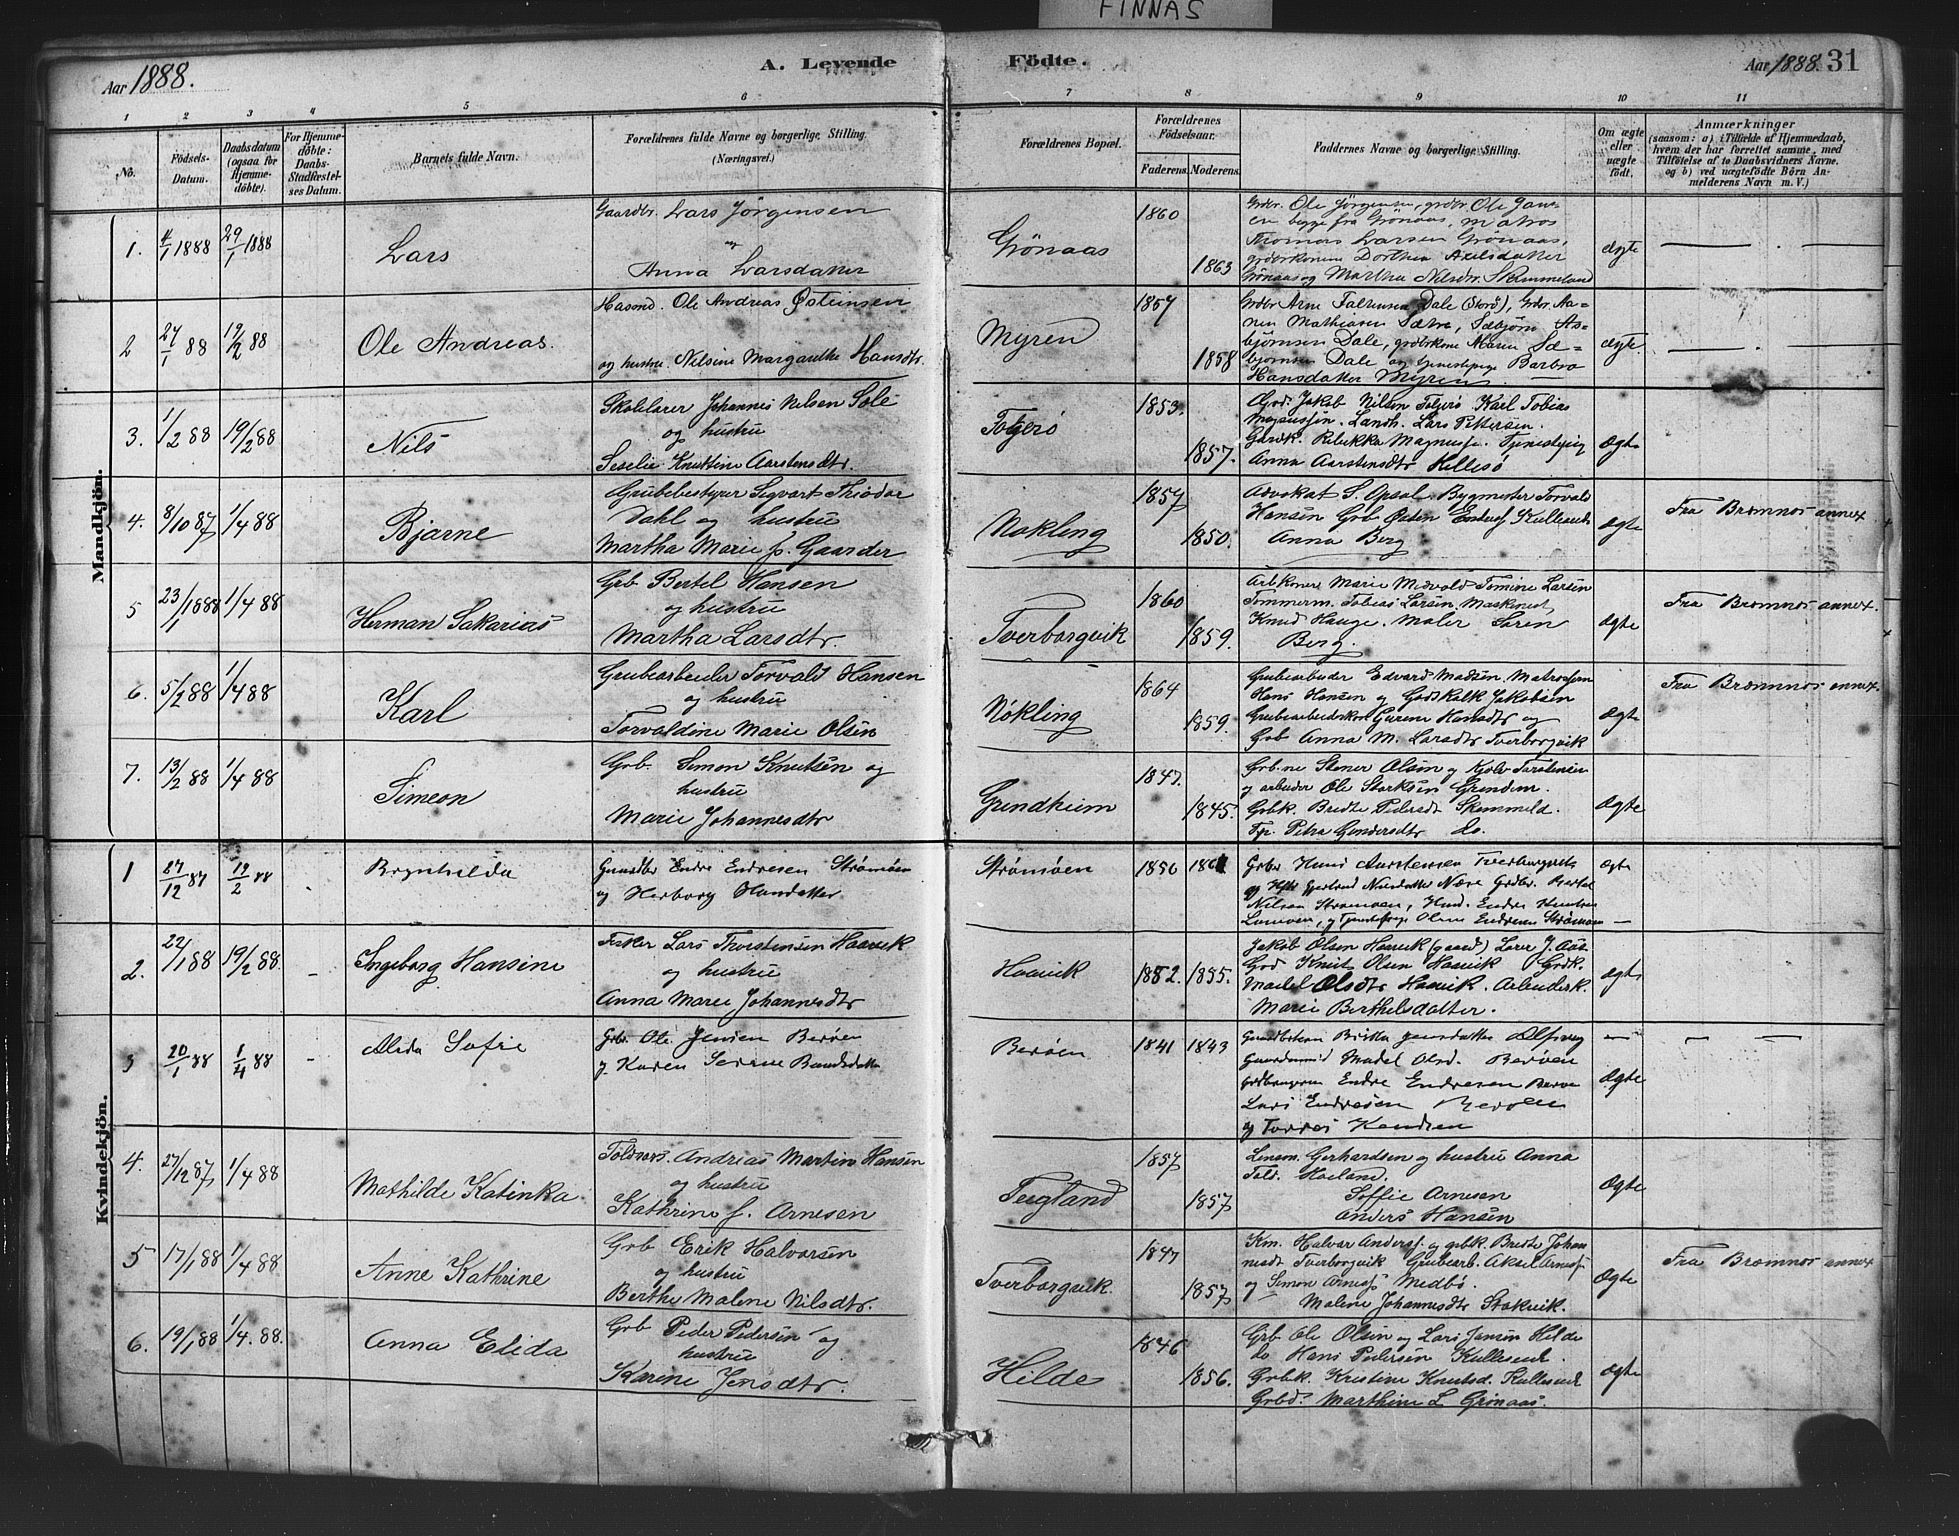 FINNAS
Aar 1888.
A. Levende Födte.
Aar 1888. 31
1 2 3 4 5 6 7 8 9 10 11
No.
Födsels-Datum.
Daabsdatum (ogsaa for Hjemme-döbte).
For Hjemme-döbte: Daabs-Stadfæstel-ses Datum.
Barnets fulde Navn.
Forældrenes fulde Navne og borgerlige Stilling.
(Næringsvei.)
Forældrenes Bopæl.
Forældrenes Födselsaar.
Faderens. Moderens.
Faddernes Navne og borgerlige Stilling.
Om ægte eller uægte födt.
Anmærkninger
(saasom: a) i Tilfælde af Hjemmedaab,
hvem der har forrettet samme, med
Tilföielse af to Daabsvidners Navne,
og b) ved uægtefödte Börn An-
melderens Navn m. V.)
Mandkjön.
1. 4/1 1888 29/1 1888
Lars
Gaardbr. Lars Jørgensen
og
Anna Larsdatter
Grönaas
1860
1863
Grdbr. Ole Jørgensen, grdbr. Ole
begge fra Grönaas, matros
Thomas Larsen Grönaas,
grdbrkonem Dorthea Axelsdatter
Grönaas og Martha Nilsdr. Skimmeland
ægte
2 27/1 88 19/2 88
Ole Andreas.
Husmd. Ole Andreas Østeinsen
og hustru Nilsine Margarethe Hansdtr.
Myren
1857
1858
Grdbr Arne Dale (Stord), Grdbr. Aa-
nen Mathiasen Sætre, Sæbjørn As-
bjørnsen Dale, grdbrkone Maren Sæ-
bjørnsen Dale og tjenestepige Barbro
Hansdatter Myren
ægte.
3. 1/2 88 19/2 88
Nils
Skolelærer Johannes Nilsen Sole
og hustru
Seselie Knuttine Aarstensdtr.
Folgerø
1853.
1857.
Grd. Jakob Nilsen Folgerø Karl Tobias
Magnussøn. Landh. Lars Pettersen.
Gaardk. Rebekka Magnuss. Tjenestepig
Anna Aarstensdtr Hellesö
Ægte
4. 8/10 87 1/4 88
Bjarne
Grubebestyrer Segvart Thiodor
Dahl og hustru
Martha Marie f. Gaarder
Nøkling
1857
1850.
Advokat S. Opsal. Bygmester Torvald
Hansen Grb Østen Endress Kulleseid
Anna Berg
Ægte
Fra Bremnes annex
5 23/1 1888 1/4 88
Herman Sakarias
Grb Bertel Hansen
og hustru
Martha Larsdtr.
Tverborgvik
1860
1859.
Arbkoner Marie Medvold Tomine Larsen
Tømmerm. Tobias Larsen, Maskinist
Knud Hauge. Maler Søren
Berg.
Ægte
Fra Bremnes annex.
6. 5/2 88 1/4 88
Karl
Grubearbeider Torvald Hansen
og hustru
Torvaldine Marie Olsen
Nøkling
1864
1859.
Grubearbeider Edvard Madsen. Matroserne
Hans Hansen og Godskalk Jakobsen
Grubearbeidskone Gurine Hansdtr og
Grb Anna M. Larsdtr Tverborgvik
Ægte
Fra Bremnes annex.
7. 13/2 88 1/4 88
Simeon
Grb. Simon Knutsen og
hustru
Marie Johannesdtr
Grindheim
1847.
1845.
Grb.ne Stener Olsen og Kjølv Torstensen
og arbeider Ole Storksen Grindem.
Grbk. Bredte Pedersdt Skimmeld.
Tp. Petra Gundersdtr do.
Ægte
Kvindekjön.
1 27/12 87 19/2 88
Brynhilda
Gaardbr Endre Endresen Strømøen
og Herborg Hansdatter
Strømøen
1856
Grbr Hans Aarstensen Tverborgvik
og Gjertrud Nilsdatter Næse Grdbr. Bertel
Nilsen Strømøen, Husd. Endre Knutsen
og Tjenestepige Oline Endresen Strømøen
ægte
2. 22/1 88 19/2 88
Ingeborg Hansine
Fisker Lars Thorstensen Haavik
og hustru
Anna Marie Johannesdtr
Haavik
1852. 1855.
Jakob Olsen Haavik (gaard) Lærer J. Aas.
Grd Knut Olsen Haavik Grdk.
Madel Olsdtr Haavik. Arbeidersk.
Marie Berthelsdatter.
Ægte
3 20/1 88 1/4 88
Alida Sofie
Grbr. Ole Jensen Berøen
g. Karen Serine Baardsdatter
Berøen
1841 1843
Brita Jensdatter
Madel Olsd. Berøen
Endre Endresen Berøe
Lars Endresen Berøen
og Torres Knudsen
Ægte
4. 27/12 87 1/4 88
Mathilde Katinka
Toldvors. Andreas Martin Hansen
og hustru
Kathrine f. Arnesen
Tergland
1857
1857
Lensm. Gerhardsen og hustru Anna
Told. Høeland.
Soffie Arnesen
Anders Hansen
Ægte
5 17/1 88 1/4 88
Anne Kathrine
Grb Erik Halvorsen
og hustru
Berthe Malene Nilsdtr.
Tverborgvik.
1847
1857
Km. Halvar Anderss. og grbk. Bredte Johan
nesdt Tverborgvik Grubearb. Aksel Arness
og Simon Arness Medbø.
Malene Johannesdtr Stokvik.
Ægte
Fra Bremnes annex
6. 19/1 88 1/4. 88.
Anna Elida
Grb Peder Pedersen og
hustru
Karine Jensdtr.
Hilde
1846
1856.
Grb Ole Olsen og Lars Jensen Hilde
do Hans Pedersen Kulleseid.
Grbk. Kristine Knutsd. Kulleseid
Grbd. Marthine L Grönaas.
Ægte